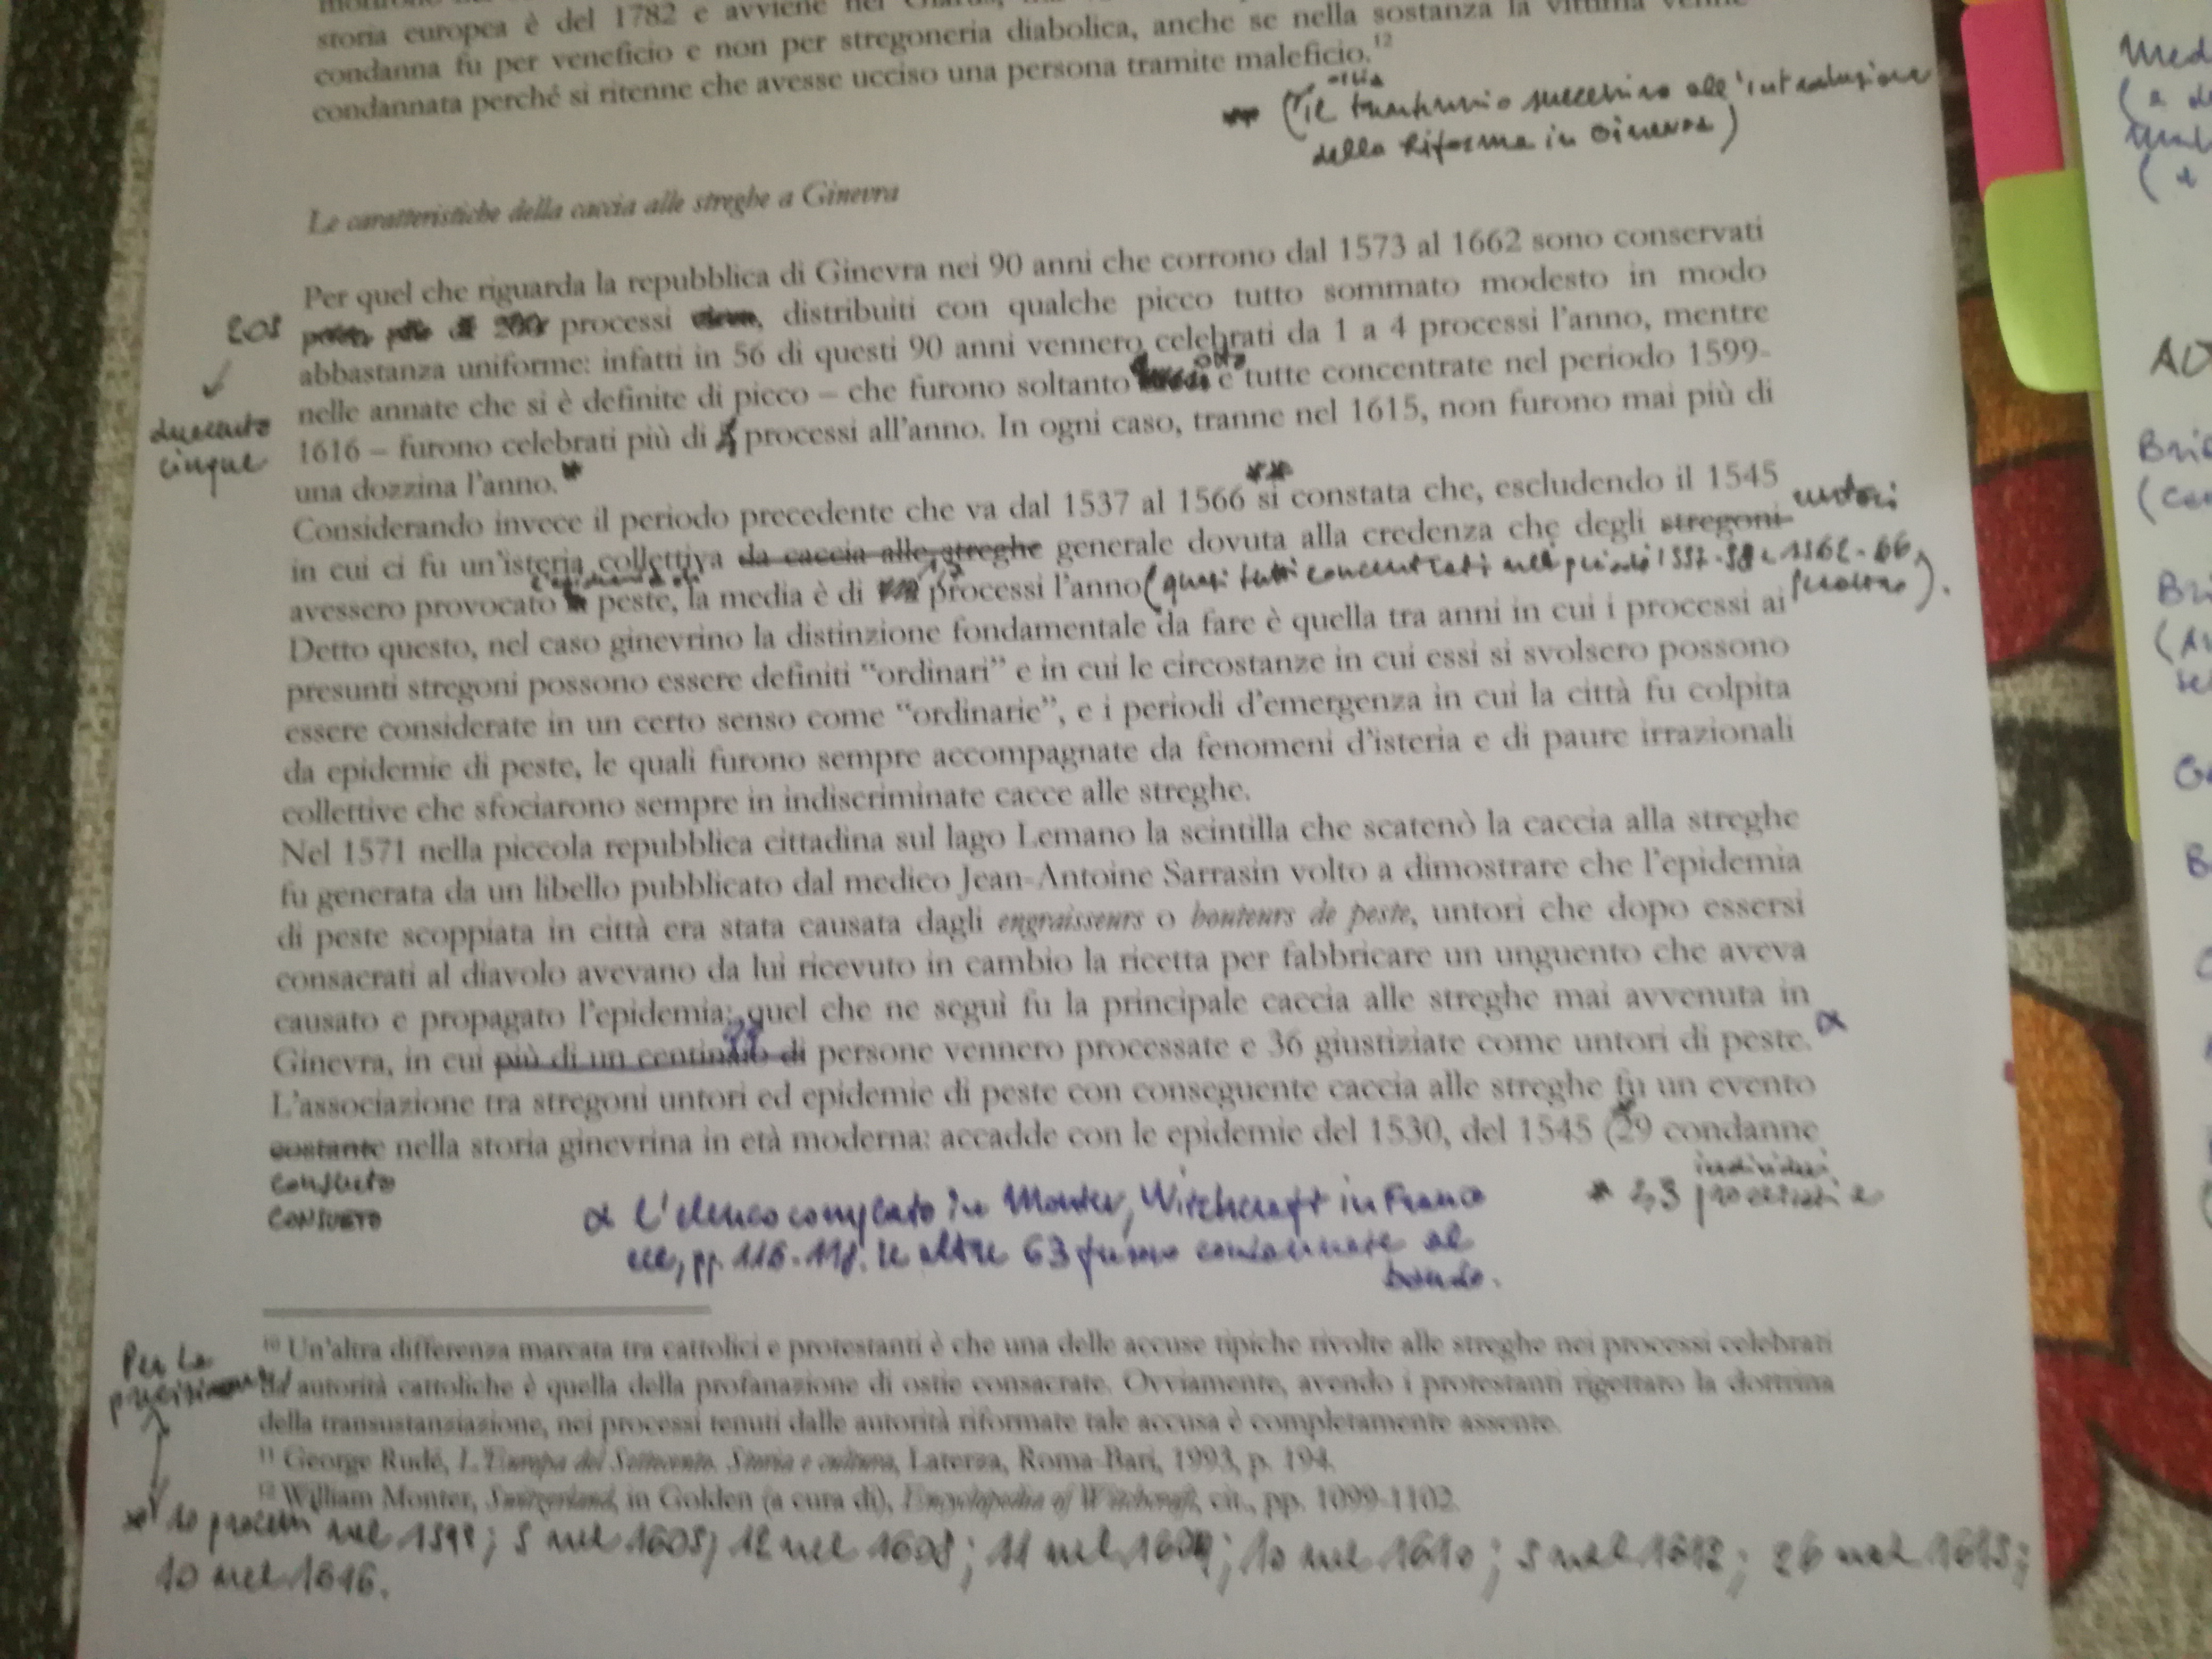 storia europea è del 1782 e avviene nel
condanna fu per veneficio e non per stregoneria diabolica, anche se nella sostanza la vittima venne
condannata perché si ritenne che avesse ucciso una persona tramite maleficio.12
** (il successivo all'introduzione
della Riforma in Ginevra)
Le caratteristiche della caccia alle streghe a Ginevra
Per quel che riguarda la repubblica di Ginevra nei 90 anni che corrono dal 1573 al 1662 sono conservati
205
processi, distribuiti con qualche picco tutto sommato modesto in modo
abbastanza uniforme: infatti in 56 di questi 90 anni vennero celebrati da 1 a 4 processi l'anno, mentre
nelle annate che si è definite di picco – che furono soltanto otto e tutte concentrate nel periodo 1599-
duecento
cinque
1616 – furono celebrati più di processi all'anno. In ogni caso, tranne nel 1615, non furono mai più di
una dozzina l'anno.*
Considerando invece il periodo precedente che va dal 1537 al 1566 ** si constata che, escludendo il 1545
in cui ci fu un'isteria collettiva da caccia alle streghe generale dovuta alla credenza che degli stregoni untori
avessero provocato l'epidemia di peste, la media è di processi l'anno (quasi tutti concentrati nel 1562-66
Detto questo, nel caso ginevrino la distinzione fondamentale da fare è quella tra anni in cui i processi ai
presunti stregoni possono essere definiti "ordinari" e in cui le circostanze in cui essi si svolsero possono
essere considerate in un certo senso come "ordinarie", e i periodi d'emergenza in cui la città fu colpita
da epidemie di peste, le quali furono sempre accompagnate da fenomeni d'isteria e di paure irrazionali
collettive che sfociarono sempre in indiscriminate cacce alle streghe.
Nel 1571 nella piccola repubblica cittadina sul lago Lemano la scintilla che scatenò la caccia alla streghe
fu generata da un libello pubblicato dal medico Jean-Antoine Sarrasin volto a dimostrare che l'epidemia
di peste scoppiata in città era stata causata dagli engraisseurs o bouteurs de peste, untori che dopo essersi
consacrati al diavolo avevano da lui ricevuto in cambio la ricetta per fabbricare un unguento che aveva
causato e propagato l'epidemia: quel che ne seguì fu la principale caccia alle streghe mai avvenuta in
Ginevra, in cui più di un centinaio di 99 persone vennero processate e 36 giustiziate come untori di peste. α
L'associazione tra stregoni untori ed epidemie di peste con conseguente caccia alle streghe fu un evento
costante nella storia ginevrina in età moderna: accadde con le epidemie del 1530, del 1545 (29 condanne
consueto
CONSUETO
α L'elenco completo in Monter, Witchcraft in France
ecc, pp. 116-118. Le altre 63 furono condannate al
bando.
* individui
processati e
10 Un'altra differenza marcata tra cattolici e protestanti è che una delle accuse tipiche rivolte alle streghe nei processi celebrati
Per la
precisione
da autorità cattoliche è quella della profanazione di ostie consacrate. Ovviamente, avendo i protestanti rigettato la dottrina
della transustanziazione, nei processi tenuti dalle autorità riformate tale accusa è completamente assente.
11 George Rudé, L'Europa del Settecento. Storia e cultura, Laterza, Roma-Bari, 1993, p. 194.
12 William Monter, Switzerland, in Golden (a cura di), Encyclopedia of Witchcraft, cit., pp. 1099-1102.
* 10 processi nel 1599; 5 nel 1605; 12 nel 1608; 11 nel 1609; 10 nel 1610; 5 nel 1612; 26 nel 1615;
10 nel 1616.